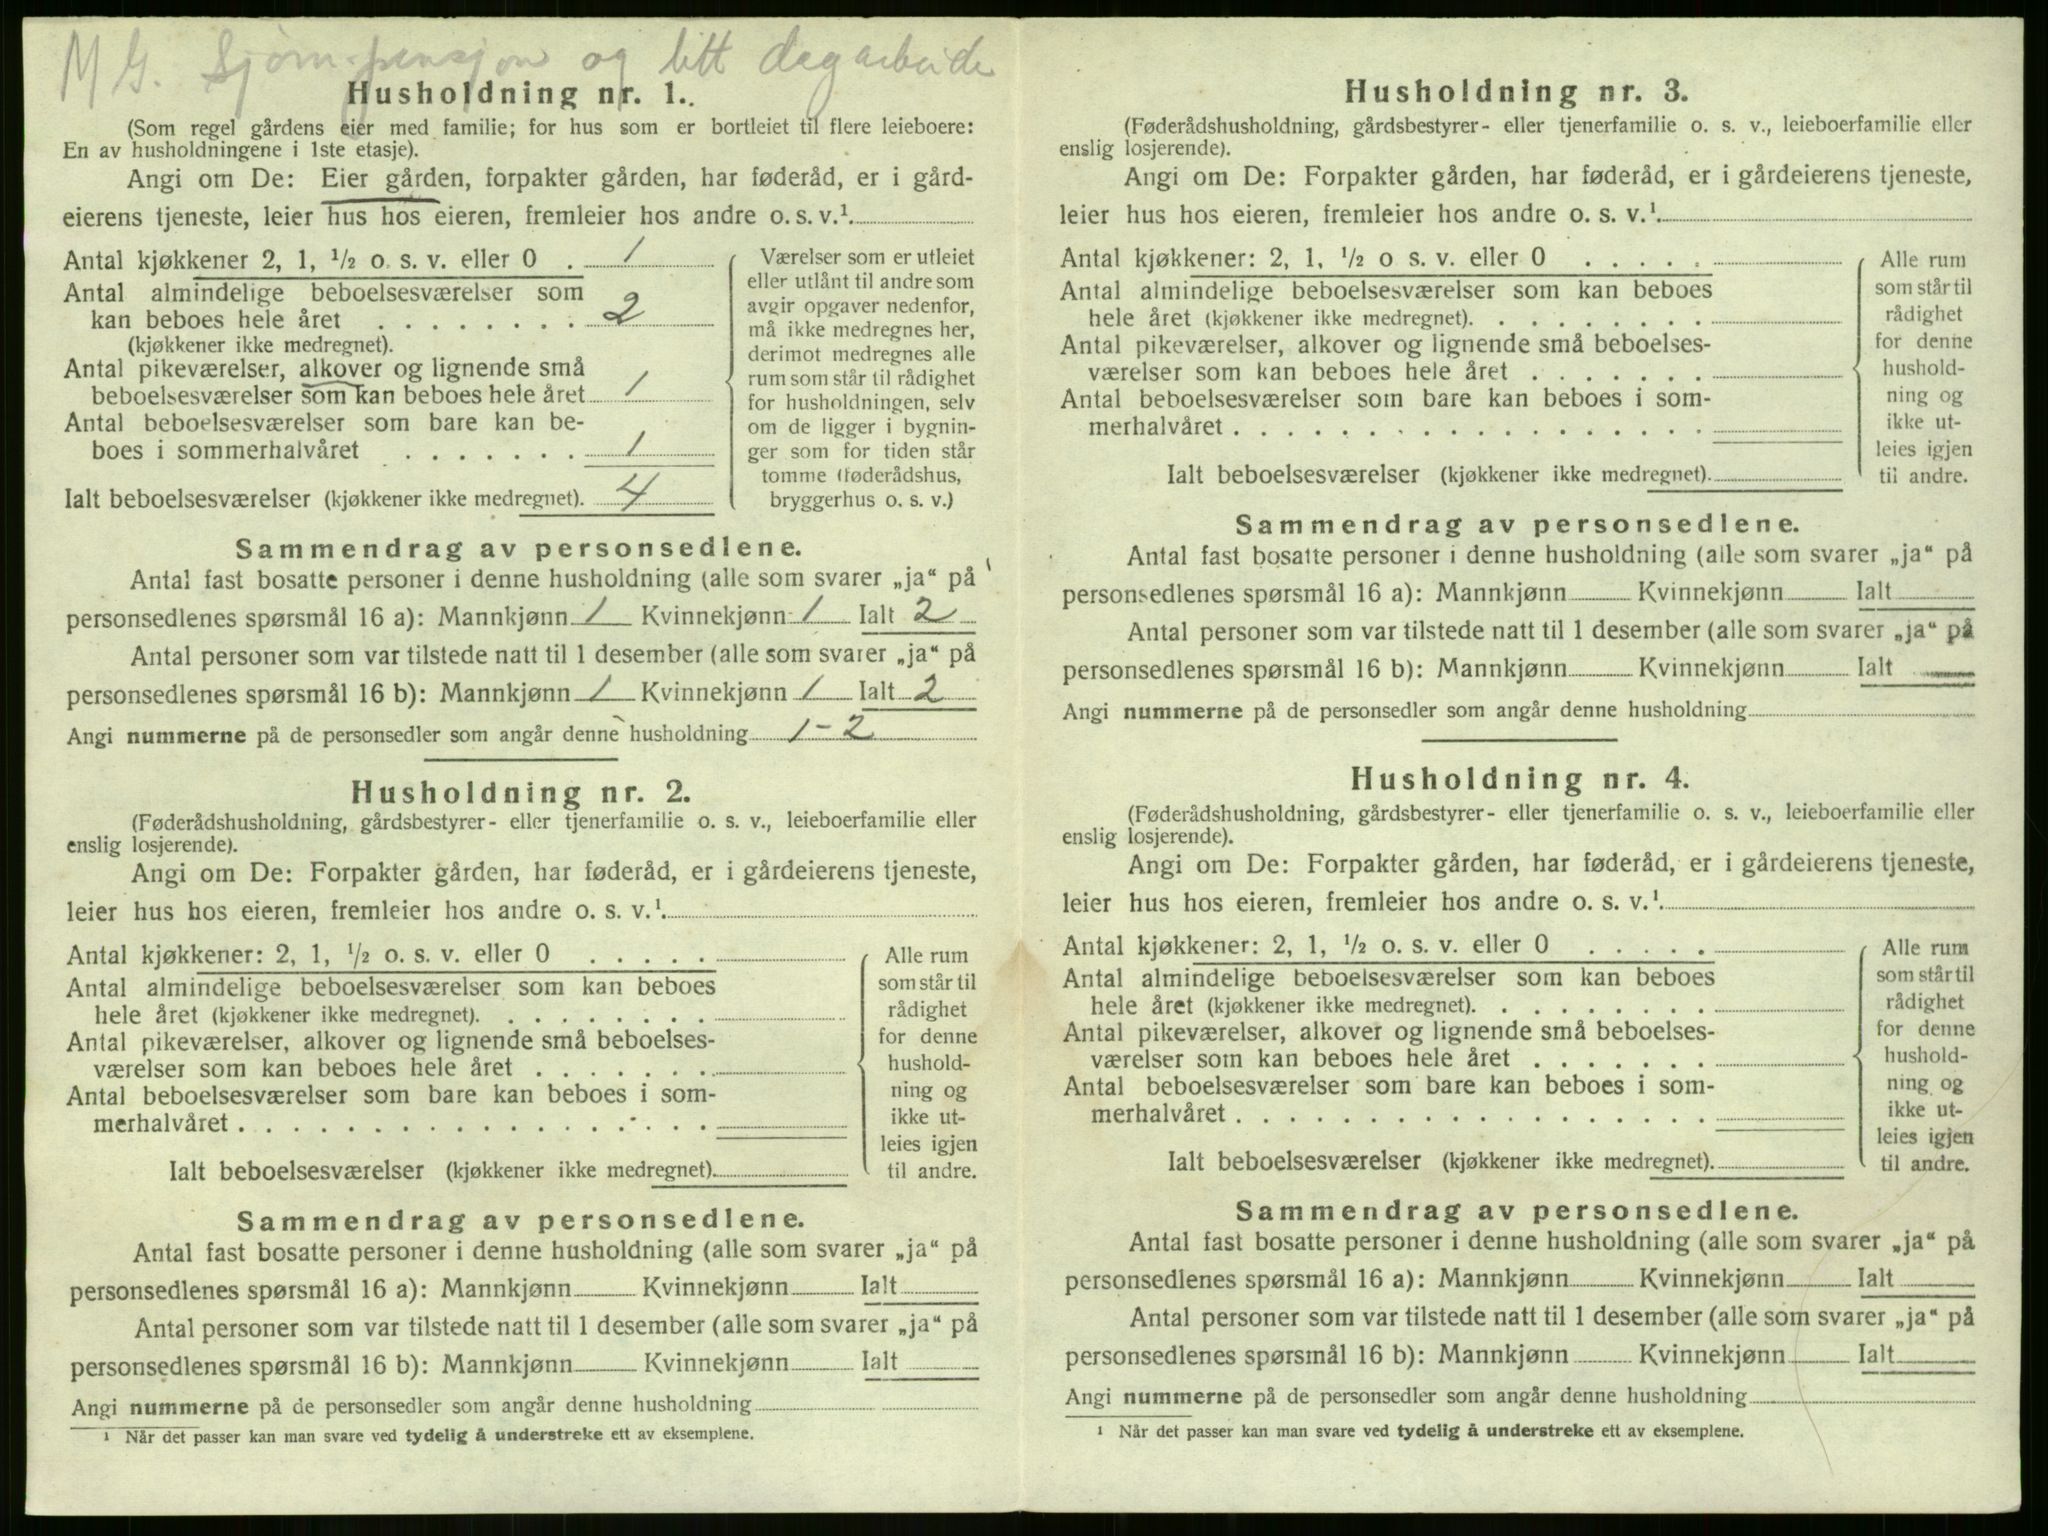 M G. Sjøm.pensjon og litt dagarbeide
Husholdning nr. 1.
(Som regel gårdens eier med familie; for hus som er bortleiet til flere leieboere:
En av husholdningene i 1ste etasje).
Angi om De: Eier gården, forpakter gården, har føderåd, er i gård-
eierens tjeneste, leier hus hos eieren, fremleier hos andre o. s. v.¹
Antal kjøkkener 2, 1, ½ o. s. v. eller 0 . 1
Antal almindelige beboelsesværelser som
kan beboes hele året . . . . . . . . 2
(kjøkkener ikke medregnet).
Antal pikeværelser, alkover og lignende små
beboelsesværelser som kan beboes hele året 1
Antal beboelsesværelser som bare kan be-
boes i sommerhalvåret . . . . . . . 1
Ialt beboelsesværelser (kjøkkener ikke medregnet). 4
Værelser som er utleiet
eller utlånt til andre som
avgir opgaver nedenfor,
må ikke medregnes her,
derimot medregnes alle
rum som står til rådighet
for husholdningen, selv
om de ligger i bygnin-
ger som for tiden står
tomme (føderådshus,
bryggerhus o. s. v.)
Sammendrag av personsedlene.
Antal fast bosatte personer i denne husholdning (alle som svarer „ja“ på
personsedlenes spørsmål 16 a): Mannkjønn 1 Kvinnekjønn 1 Ialt 2
Antal personer som var tilstede natt til 1 desember (alle som svarer „ja“ på
personsedlenes spørsmål 16 b): Mannkjønn 1 Kvinnekjønn 1 Ialt 2
Angi nummerne på de personsedler som angår denne husholdning 1-2
Husholdning nr. 2.
(Føderådshusholdning, gårdsbestyrer- eller tjenerfamilie o. s. v., leieboerfamilie eller
enslig losjerende).
Angi om De: Forpakter gården, har føderåd, er i gårdeierens tjeneste,
leier hus hos eieren, fremleier hos andre o. s. v.¹
Antal kjøkkener: 2, 1, ½ o. s. v. eller 0 . . . . .
Antal almindelige beboelsesværelser som kan beboes
hele året (kjøkkener ikke medregnet). . . . . . . . .
Antal pikeværelser, alkover og lignende små beboelses-
værelser som kan beboes hele året . . . . . . .
Antal beboelsesværelser som bare kan beboes i som-
merhalvåret . . . . . . . . . . . . . . . . . .
Ialt beboelsesværelser (kjøkkener ikke medregnet).
Alle rum
som står til
rådighet
for denne
hushold-
ning og
ikke ut-
leies igjen
til andre.
Sammendrag av personsedlene.
Antal fast bosatte personer i denne husholdning (alle som svarer „ja“ på
personsedlenes spørsmål 16 a): Mannkjønn Kvinnekjønn Ialt
Antal personer som var tilstede natt til 1 desember (alle som svarer „ja“ på
personsedlenes spørsmål 16 b): Mannkjønn Kvinnekjønn Ialt
Angi nummerne på de personsedler som angår denne husholdning
¹ Når det passer kan man svare ved tydelig å understreke ett av eksemplene.
Husholdning nr. 3.
(Føderådshusholdning, gårdsbestyrer- eller tjenerfamilie o. s. v., leieboerfamilie eller
enslig losjerende).
Angi om De: Forpakter gården, har føderåd, er i gårdeierens tjeneste,
leier hus hos eieren, fremleier hos andre o. s. v.¹
Antal kjøkkener: 2, 1, ½ o s. v. eller 0 . . . . .
Antal almindelige beboelsesværelser som kan beboes
hele året (kjøkkener ikke medregnet). . . . . . . . .
Antal pikeværelser, alkover og lignende små beboelses-
værelser som kan beboes hele året . . . . . . .
Antal beboelsesværelser som bare kan beboes i som-
merhalvåret . . . . . . . . . . . . . . . . . .
Ialt beboelsesværelser (kjøkkener ikke medregnet).
Alle rum
som står til
rådighet
for denne
hushold-
ning og
ikke ut-
leies igjen
til andre.
Sammendrag av personsedlene.
Antal fast bosatte personer i denne husholdning (alle som svarer „ja“ på
personsedlenes spørsmål 16 a): Mannkjønn Kvinnekjønn Ialt
Antal personer som var tilstede natt til 1 desember (alle som svarer „ja“ på
personsedlenes spørsmål 16 b): Mannkjønn Kvinnekjønn Ialt
Angi nummerne på de personsedler som angår denne husholdning
Husholdning nr. 4.
(Føderådshusholdning, gårdsbestyrer- eller tjenerfamilie o. s. v., leieboerfamilie eller
enslig losjerende).
Angi om De: Forpakter gården, har føderåd, er i gårdeierens tjeneste,
leier hus hos eieren, fremleier hos andre o. s. v.¹
Antal kjøkkener: 2, 1, ½ o. s. v. eller 0 . . . . .
Antal almindelige beboelsesværelser som kan beboes
hele året (kjøkkener ikke medregnet). . . . . . . . .
Antal pikeværelser, alkover og lignende små beboelses-
værelser som kan beboes hele året . . . . . . .
Antal beboelsesværelser som bare kan beboes i som-
merhalvåret . . . . . . . . . . . . . . . . . .
Ialt beboelsesværelser (kjøkkener ikke medregnet).
Alle rum
som står til
rådighet
for denne
hushold-
ning og
ikke ut-
leies igjen
til andre.
Sammendrag av personsedlene.
Antal fast bosatte personer i denne husholdning (alle som svarer „ja“ på
personsedlenes spørsmål 16 a): Mannkjønn Kvinnekjønn Ialt
Antal personer som var tilstede natt til 1 desember (alle som svarer „ja“ på
personsedlenes spørsmål 16 b): Mannkjønn Kvinnekjønn Ialt
Angi nummerne på de personsedler som angår denne husholdning
¹ Når det passer kan man svare ved tydelig å understreke ett av eksemplene.